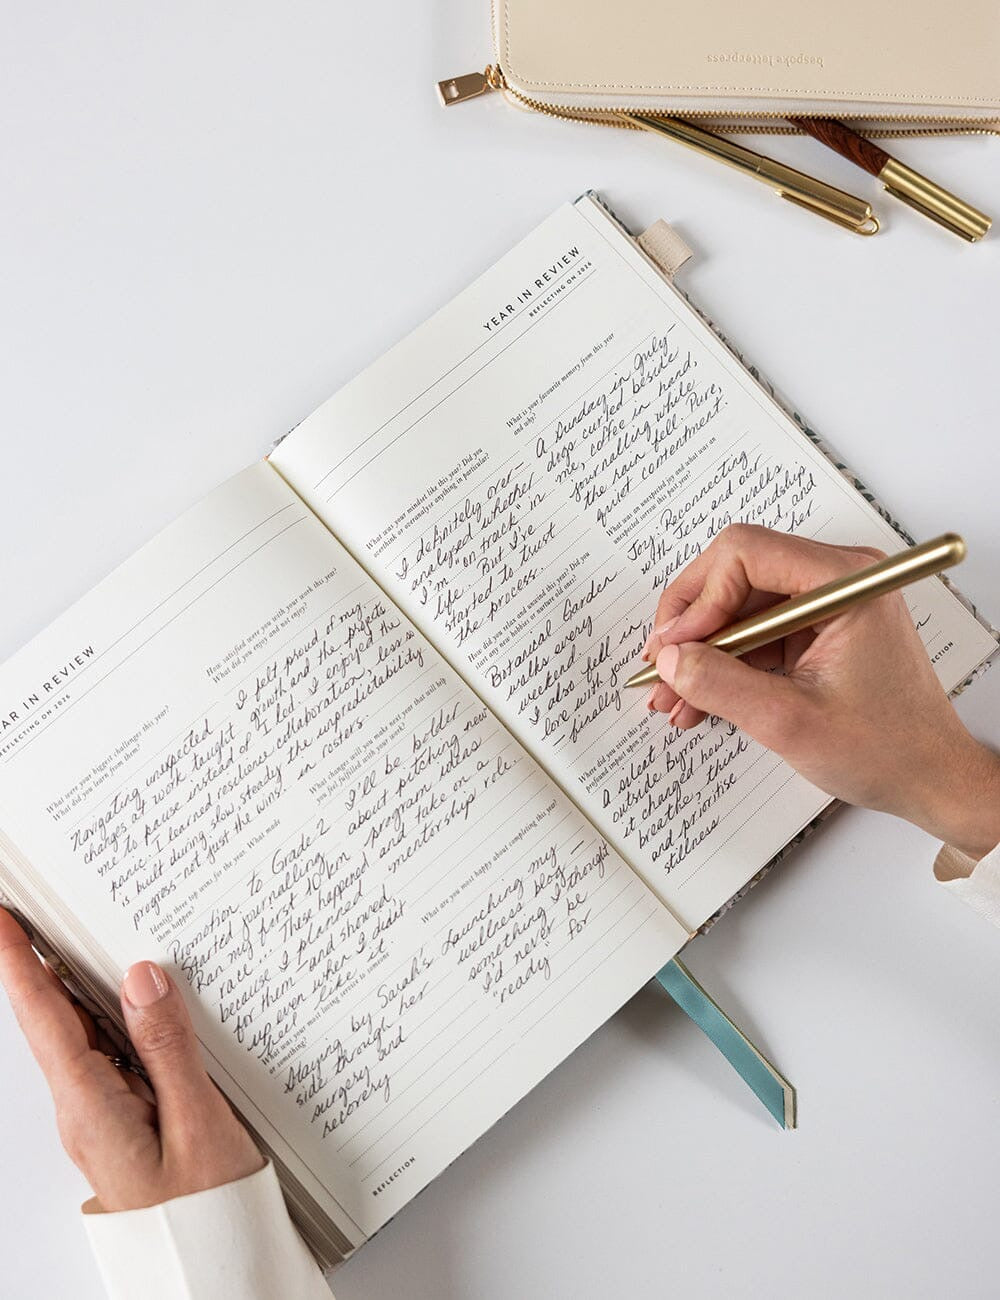 bespoke letterpress
YEAR IN REVIEW
REFLECTING ON 2026
What were your biggest challenges this year?
What did you learn from them?
Navigating unexpected
changes at work taught
me to pause instead of
panic. I learned resilience
is built during slow, steady
progress—not just the wins.
How satisfied were you with your work this year?
What did you enjoy and not enjoy?
I felt proud of my
growth and the projects
I led. I enjoyed the
collaboration, less so
the unpredictability
in rosters.
Identify three top wins for the year. What made
them happen?
Promotion to Grade 2
Started journalling
Ran my first 10km
race... These happened
because I planned
for them—and showed
up even when I didn't
feel like it.
What changes will you make next year that will help
you feel fulfilled with your work?
I'll be bolder
about pitching new
program ideas
and take on a
mentorship role.
What was your most loving service to someone
or something?
Staying by Sarah's
side through her
surgery and
recovery
What are you most happy about completing this year?
Launching my
wellness blog—
something I thought
I'd never be
"ready" for
REFLECTION
YEAR IN REVIEW
REFLECTING ON 2026
What was your mindset like this year? Did you
overthink or overanalyze anything in particular?
I definitely over-
analysed whether
I'm "on track" in
life... But I've
started to trust
the process.
What is your favourite memory from this year
and why?
A Sunday in July—
dogs curled beside
me, coffee in hand,
journalling while
the rain fell. Pure,
quiet contentment.
How did you relax and unwind this year? Did you
start any new hobbies or nurture old ones?
Botanical Garden
walks every
weekend.
I also fell in
love with journal
—finally
What was an unexpected joy and what was an
unexpected sorrow this past year?
Joy: Reconnecting
with Jess and our
weekly dog walks
friendship
and
her
Where did you visit this year
profound impact upon you?
A silent
outside Byron
it changed how I
breathe, think
and prioritise
stillness
REFLECTION